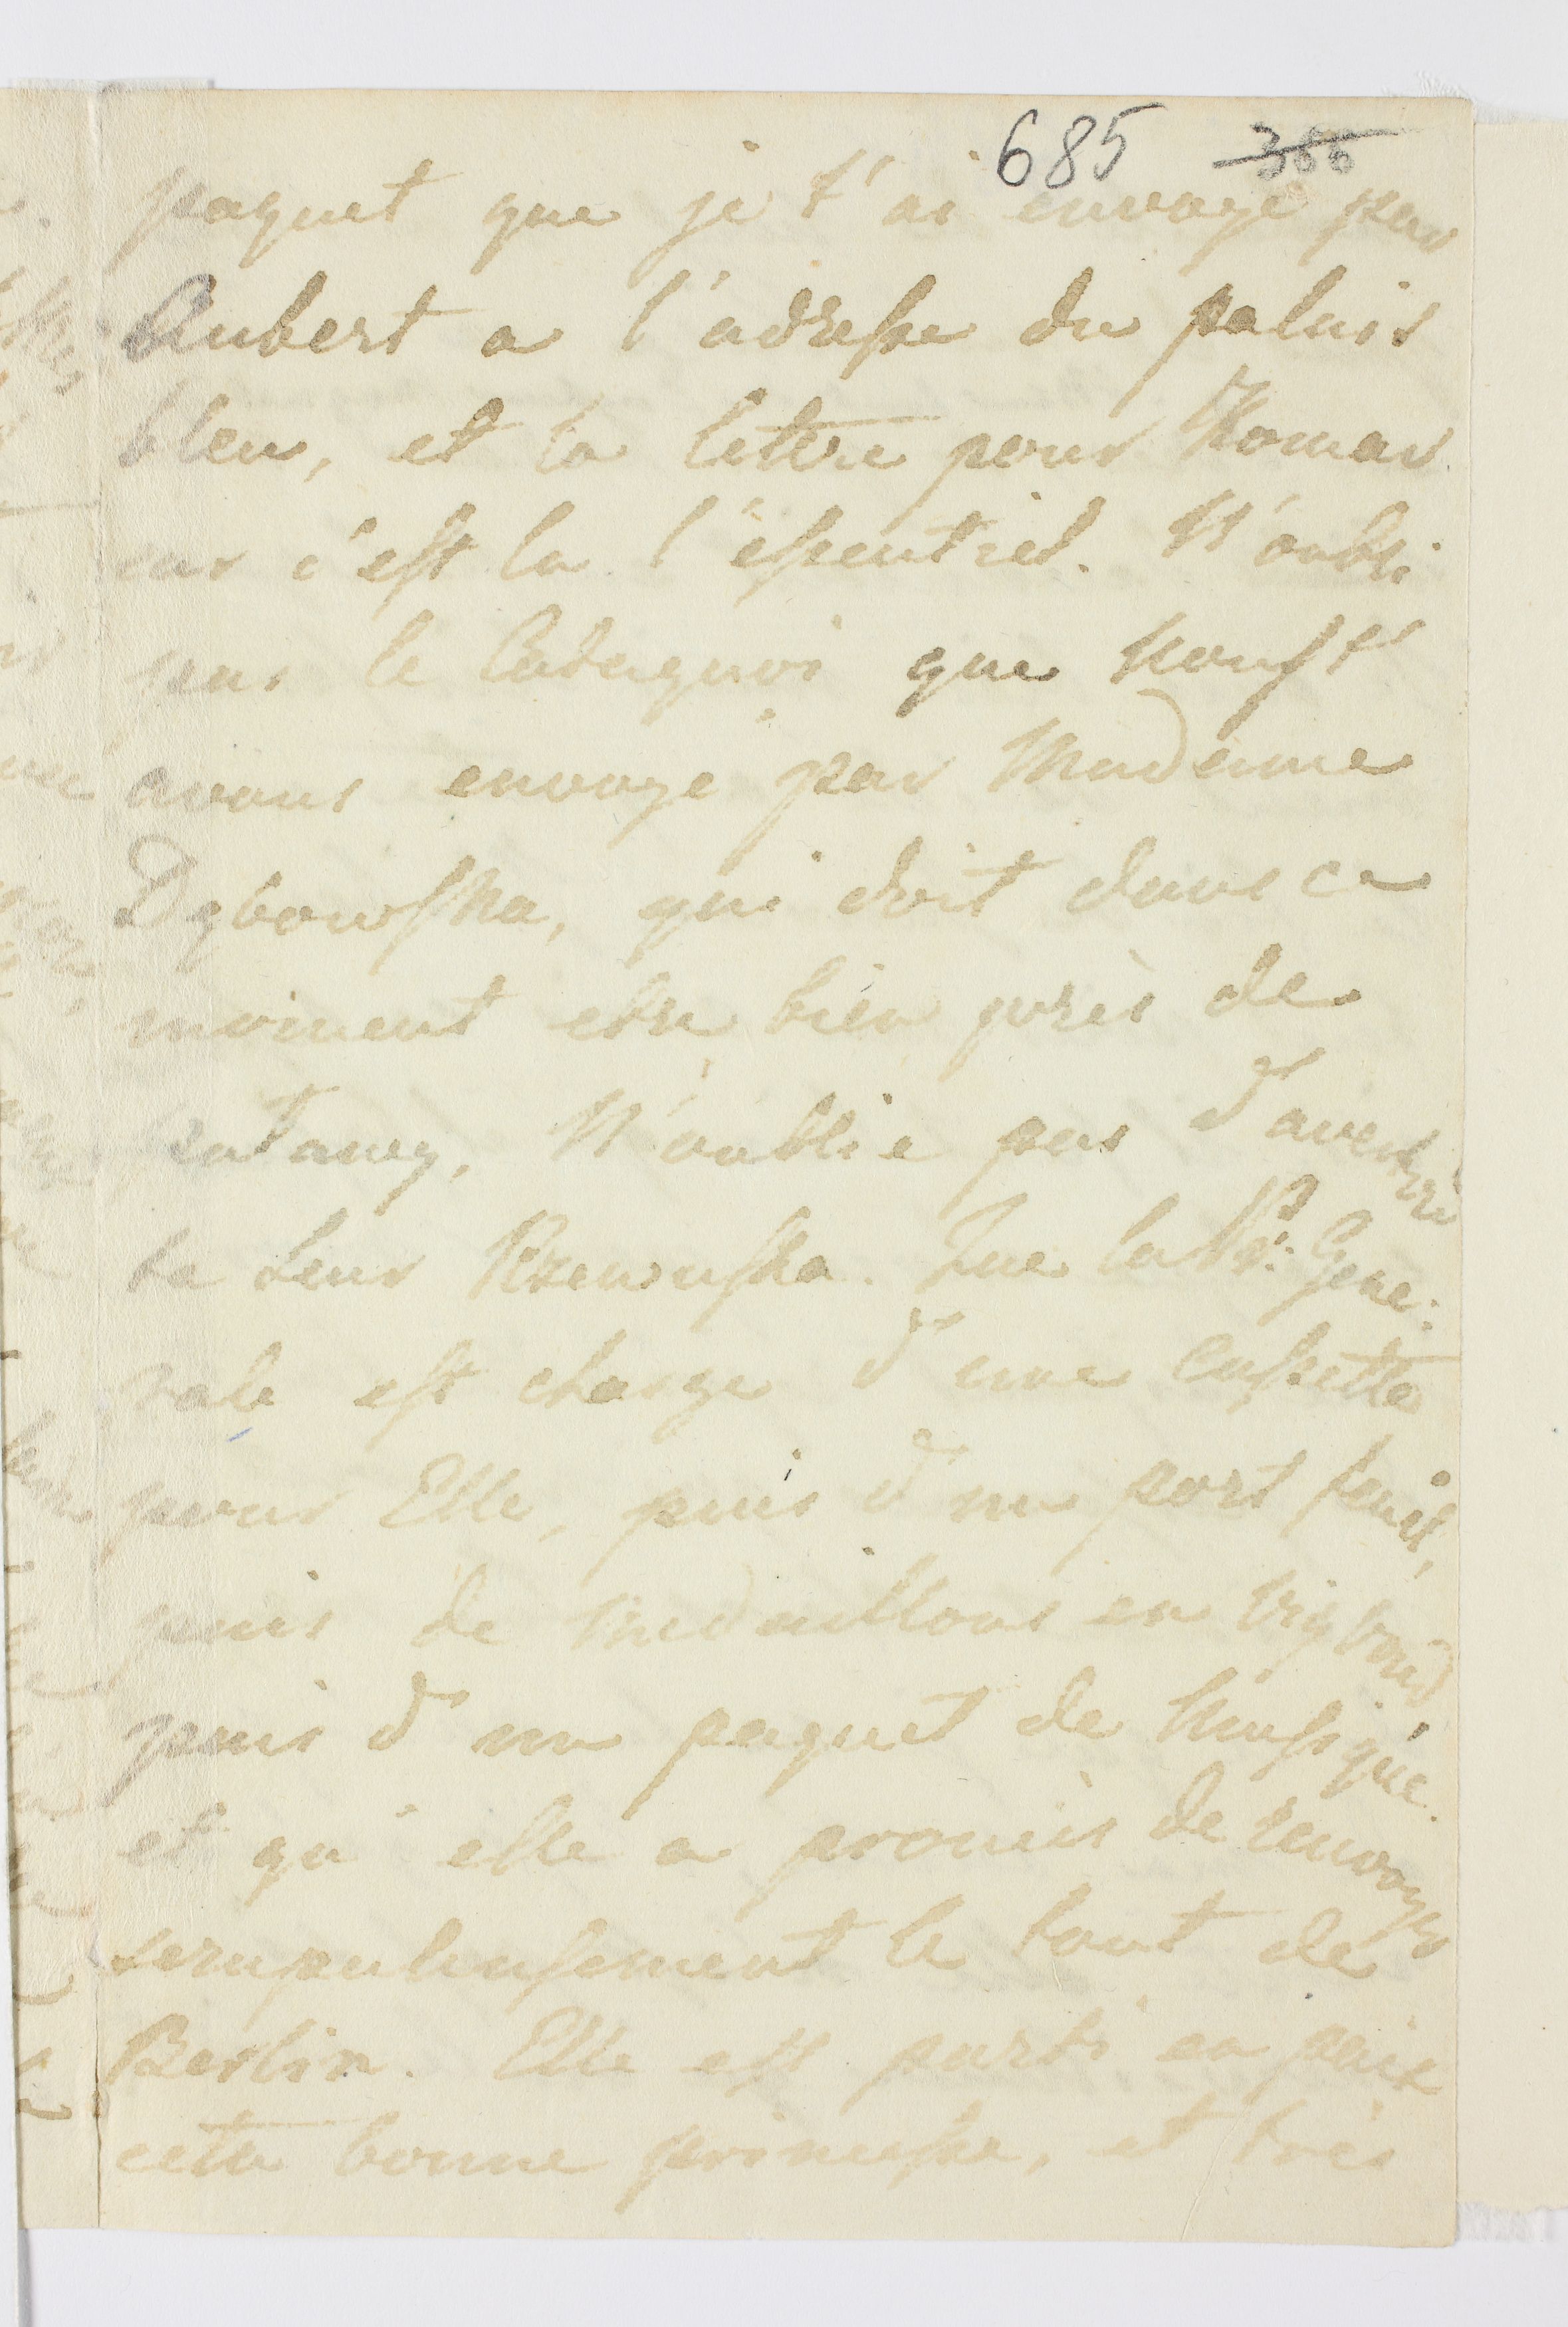 685 366
paquet que je t'ai envoye par
Aubert a l'adresse du palais
bleu, et la lettre pour Komar
car c'est la l'essentiel. N'oubli
pas le Cataquoi que nous t'
avons envoye par Madame
Dybowska, qui doit dans ce
moment etre bien près de
N'oublie pas d'avertire
ta Seur Rzewuska. Que la Pr: Gene:
rale est charge d'une Cassette
pour Elle, puis d'un port feuil,
puis de Medaillons en
puis d'un paquet de Musique.
et qu'elle a promis de renvoye
scrupuleusement le tout de
Berlin. Elle est parti en paix
cette bonne princesse, et très